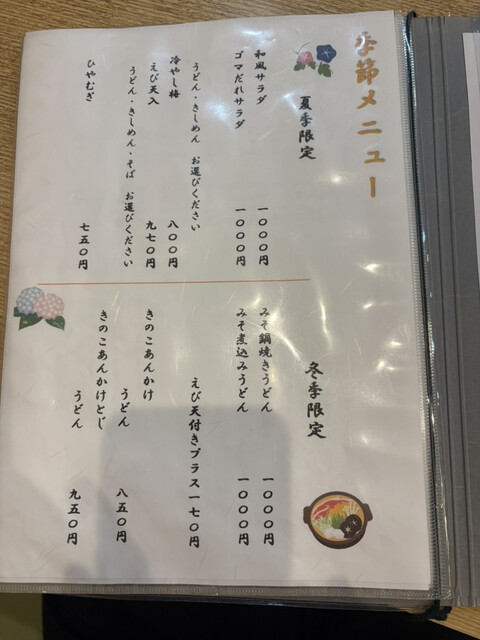 季節メニュー
夏季限定
和風サラダ 一〇〇〇円
ゴマだれサラダ 一〇〇〇円
うどん・きしめん お選びください
冷やし梅 八〇〇円
えび天入 九七〇円
うどん・きしめん・そば お選びください
ひやむぎ 七五〇円
冬季限定
みそ鍋焼きうどん 一〇〇〇円
みそ煮込みうどん 一〇〇〇円
えび天付きプラス一七〇円
きのこあんかけ
うどん 八五〇円
きのこあんかけとじ
うどん 九五〇円